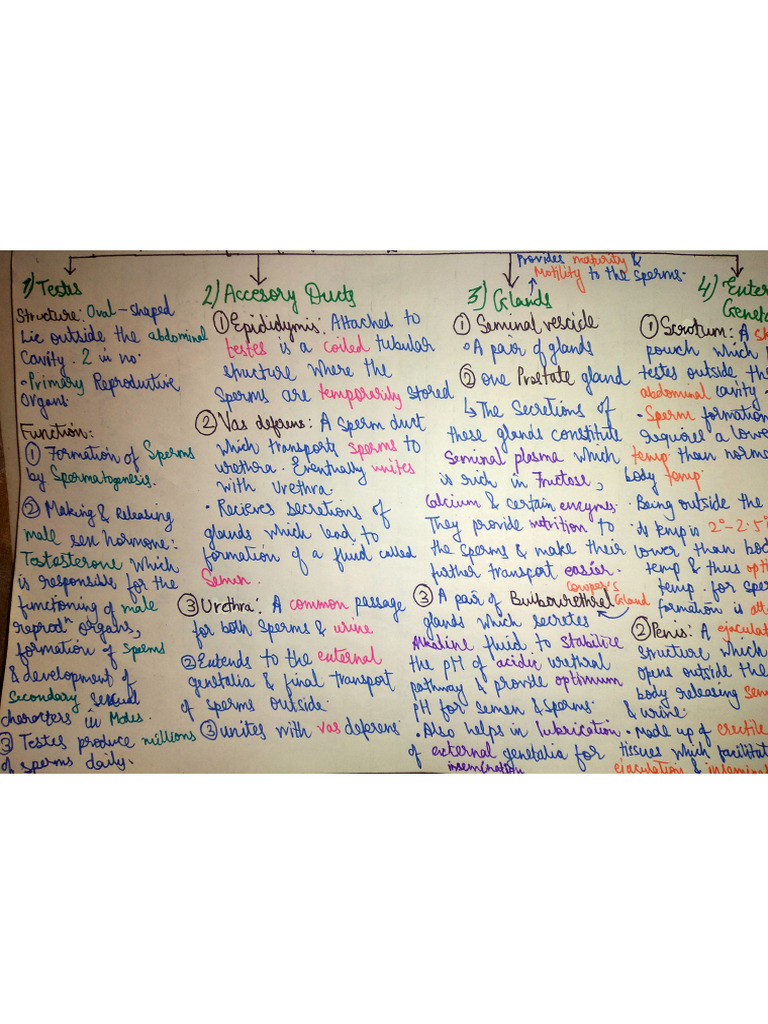 Provides maturity &
Motility to the sperms.
1) Testis
Structure: Oval-shaped
Lie outside the abdominal
Cavity. 2 in no.
• Primary Reproductive
Organs.
Function:
① Formation of Sperms
by Spermatogenesis.
② Making & Releasing
male sex hormone:
Testasterone which
is responsible for the
functioning of male
reprodⁿ organs,
formation of Sperms
& development of
Secondary Sexual
characters in Males.
③ Testes produce millions
of sperms daily.
2) Accesory Ducts
① Epididymis: Attached to
testes is a coiled tubular
structure where the
sperms are temporarily stored
② Vas deferens: A sperm duct
which transports sperms to
urethra. Eventually unites
with Urethra.
• Recieves secretions of
glands which lead to
formation of a fluid called
Semen.
③ Urethra: A common passage
for both Sperms & urine
② Extends to the external
genetalia & final transport
of sperms outside.
③ unites with vas deferens
3) Glands
① Seminal vescicle
• A pair of glands
② one Prostate gland
↳ The Secretions of
these glands constitute
Seminal plasma which
is rich in Fructose,
Calcium & certain enzymes.
They provide nutrition to
the sperms & make their
further transport easier.
Cowper's
③ A pair of Bulbourethrel Gland
glands which secretes
Alkaline fluid to stabilize
the pH of acidic urethral
pathway & provide optimum
pH for semen & sperms.
• Also helps in lubrication
of external genetalia for
insemination
4) Exter
Geneta
① Scrotum: A
pouch which
testes outside the
abdominal cavity
• Sperm formation
requires a lowe
temp than norma
body temp.
• Being outside the
its temp is 2°-2.5°
lower than bod
temp & thus opti
temp. for sper
formation is
② Penis: A ejaculat
structure which
opens outside the
body releasing sem
& urine.
• Made up of erectile
tissues which facilitat
ejaculation & insemina